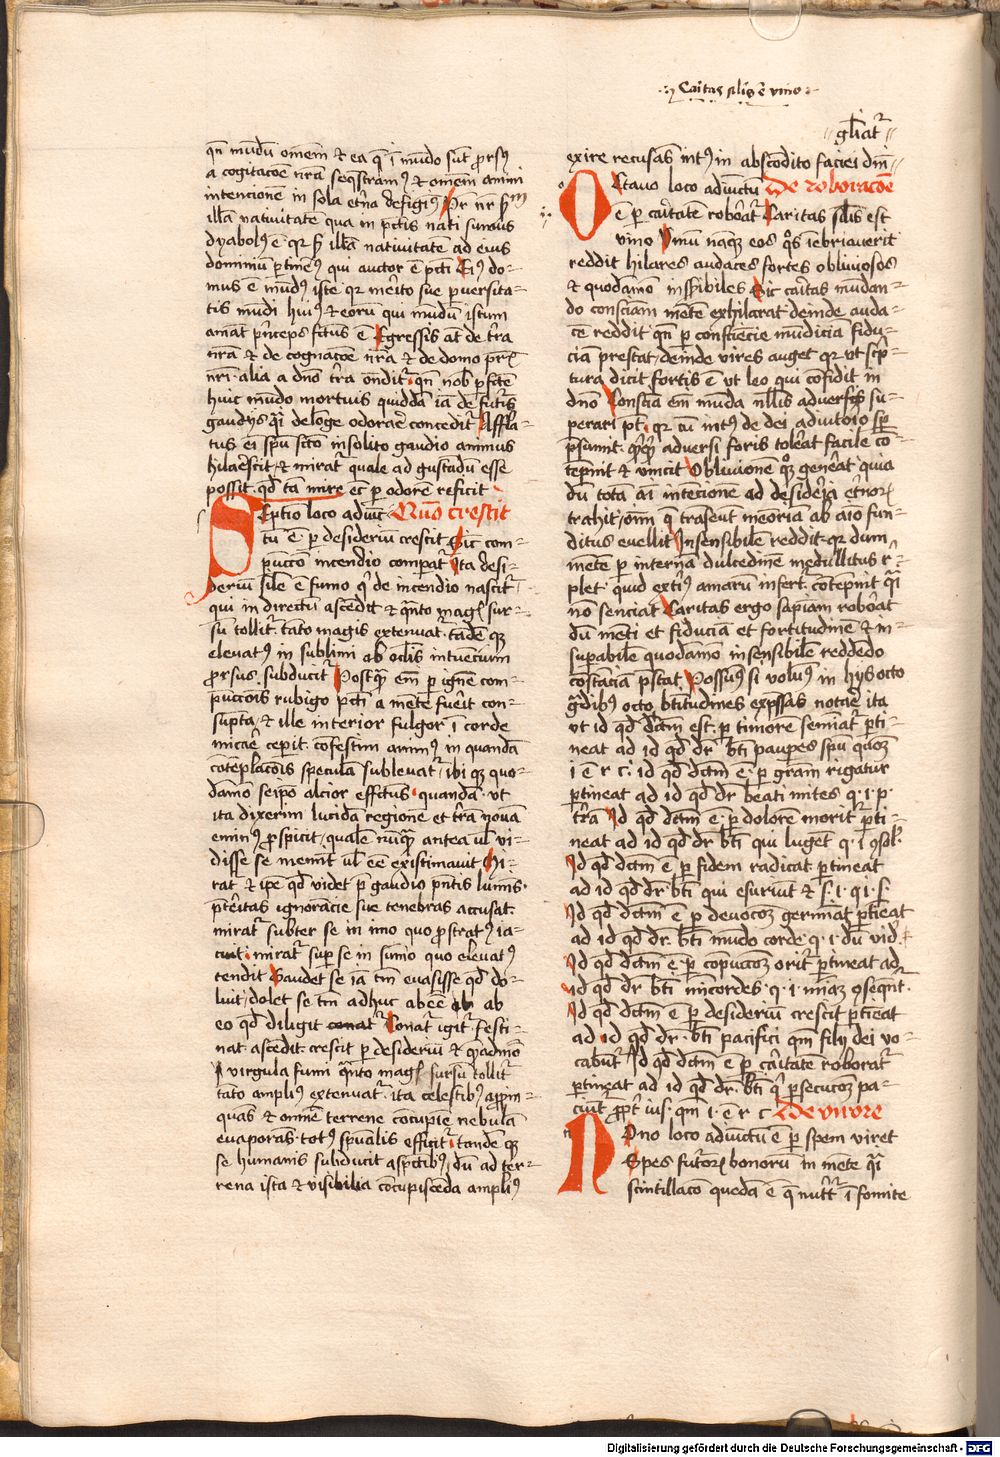 Caritas silis ē vino
gliat᷑
qn̄ mūdū omēm et ea q̄ ī mūdo sūt prorsꝰ
a cogitacōe nr̄a seq̄stramꝰ et omēm animi
intencionē in sola et̄na defigiꝰ Pr̄ nr̄ sm̄
illā nativitatē qua in pctīs nati sumus
dyabolꝰ ē qr sm̄ illā nativitatē ad eius
dominiū ptinēꝰ qui auctor ē pcti Eiꝰ do-
mus ē mūdꝰ iste qr merito sue pversita-
tis mūdi huiꝰ et eorū qui mūdū istum
amāt pnceps fctus ē Egressis at̄ de trā
nr̄a et de cognacōe nr̄a et de domo pris
nri alia a dn̄o trā ōndit᷑ qn̄ nob̄ pfcē
huic mūdo mortuis quiddā iā de futis
gaudijs q̄i de lōge odorāē concedit᷑ Affla-
tus ei spū scto insolito gaudio animus
hilaescit et mirat᷑ quale ad gustādū esse
possit qd̄ tā mire ec̄ p odorē reficit
Septio loco adiūct Quō crescit
tū ē p desideriū crescit Sic com-
puccō incendio compat᷑ Ita desi-
deriū sile ē fumo q̄ de incendio nascit᷑
qui in directū ascēdit et q̄nto mag sur-
sū tollit᷑ tāto magis extenuat tādē qꝫ
elevatꝰ in sublimi ab oclis intuencium
prorsus subducit᷑ Postq̄ em̄ p ignē com-
puccōis rubigo pcti a mēte fuēit con-
supta et ille interior fulgor ī corde
micaē cepit cōfestim animꝰ in quandā
cōtēplacōis speculā sublevat᷑ ibi qꝫ quo-
damō seipō alcior effectus quandā ut
ita dixerim lucidā regionē et trā novā
eminꝰ prospicit qualē nūq̄ antea ul̄ vi-
disse se memīt ul̄ ēē existimavit Mi-
rat᷑ et ipē qd̄ videt p̄ gaudio pn̄tis lumīs
ptēitas ignorācie sue tenebras accusat
mirat᷑ subter se in imo quo prostratꝰ ia-
cuit mirat᷑ sup se in sūmo quo elevatꝰ
tendit Gaudet se iā tm̄ evasisse qd̄ do-
luit dolet se tm̄ adhuc abēē ab
eo qd̄ diligit Conat᷑ igit᷑ festi-
nat ascēdit crescit p desideriū et q̄admō
virgula fumi q̄nto mag sursū tollit᷑
tāto ampliꝰ extenuat᷑ ita celestibꝰ appin-
quās et omnē terrene cōcupiē nebulā
evaporās totꝰ spūalis efficit᷑ tandē qꝫ
se humanis subducit aspctibꝰ dū ad ter-
rena ista et visibilia cōcupiscēda ampliꝰ
exire recusās intꝰ in abscōdito faciei dīn
Octavo loco adiūctū De roboracōe
ē p caritatē robōat᷑ Caritas silis est
vino Vinū naqꝫ eos q̄s iēbriaverit
reddit hilares audaces fortes obliviosos
et quodāmo insēsibiles Sic caritas mūdan-
do consciam mētē exhilarat deinde auda-
cē reddit qn̄ p consciēcie mūdiciā fidu-
ciā prestat deinde vires auget qr ut scp-
tura dicit fortis ē ut leo qui cōfidit in
dn̄o Consciā em̄ mūdā nllis adversis su-
perari pt qr cū intꝰ de dei adiutorio sp̄
psumit q̄cq̄ adversi foris tolēat facile cō-
tēpnit et vincit Oblivionē qꝫ genēat quia
dū totā ai intēcionē ad desideria et̄noꝝ
trahit oīm q̄ trāseunt mēoriā ab aīo fun-
ditus evellit Insensibilē reddit qr dum
mētē p internā dulcedinē medullitus r̄-
plet quid extiꝰ amarū infert cōtēpnit q̄i
nō senciat Caritas ergo sapiam robōat
dū mēti et fiduciā et fortitudinē et in-
supabilē quodamō insensibilē reddēdo
cōstāciā pstat Possumꝰ si volumꝰ in hys octo
gdibꝰ octo btitudines exp̄ssas notaē ita
ut id qd̄ dctm̄ est p timorē semiāt᷑ pti-
neat ad id qd̄ dr̄ bti pauꝑes spū qm̄
i ē r c id qd̄ dctm̄ ē p grām rigatur
ptineat ad id qd̄ dr̄ beati mites q i p
trā Id qd̄ dctm̄ ē p dolorē morit᷑ pti-
neat ad id qd̄ dr̄ bti qui lugēt q i ꝯsol
Id qd̄ dctm̄ ē p fidem radicat ptineat
ad id qd̄ dr̄ bti qui esuriūt et s i q i s
Id qd̄ dctm̄ ē p devocōꝫ germīat ptieat
ad id qd̄ dr̄ bti mūdo corde q i dm̄ vid
Id qd̄ dctm̄ ē p cōpuccōꝫ orit᷑ ptineat ad
id qd̄ dr̄ bti micordes q i miāꝫ ꝯseqnt
Id qd̄ dctm̄ ē p desideriū crescit ptieat
ad id qd̄ dr̄ bti pacifici qm̄ filij dei vo-
cabūt᷑ Id qd̄ dctm̄ ē p caritatē roborat᷑
ptineat ad id qd̄ dr̄ bti q̄ psecucōꝫ pa-
ciūt᷑ pp̄t ius qm̄ i ē r c De virore
Nono loco adiūctū ē p spem viret
Spes futoꝝ bonorū in mēte q̄i
scintillacō quedā ē q̄ nutt᷑ ī fomite
Digitalisierung gefördert durch die Deutsche Forschungsgemeinschaft - DFG